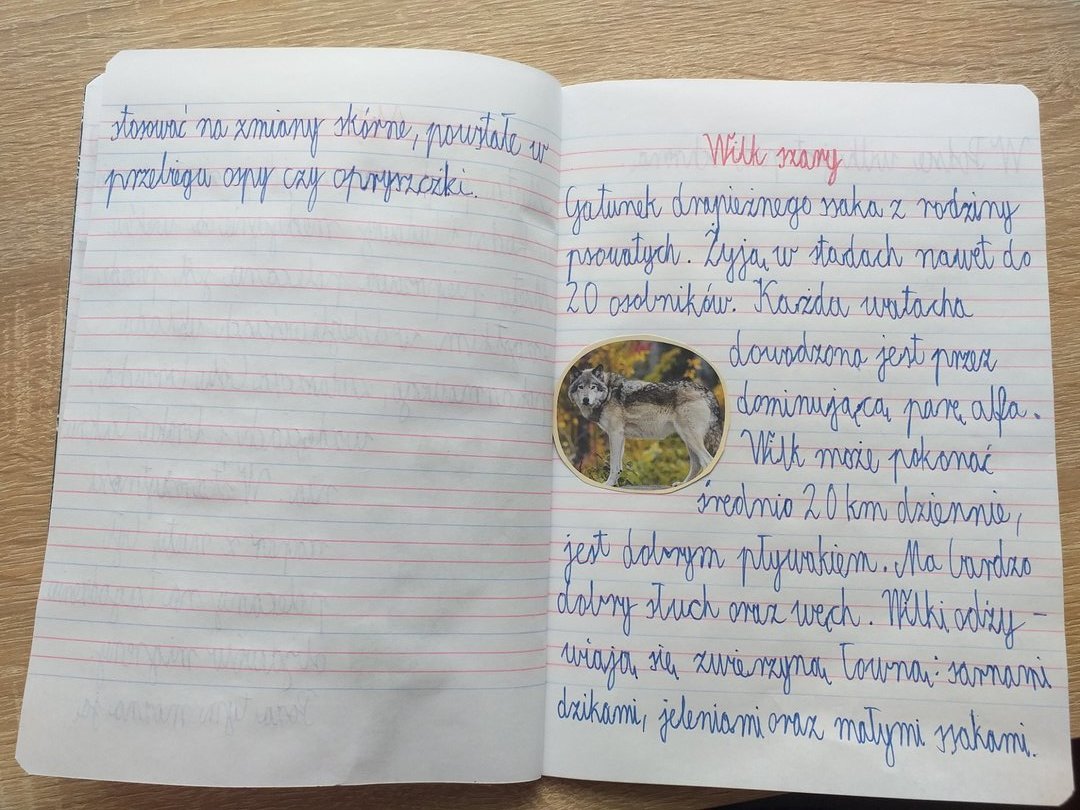 stosować na zmiany skórne, powstałe w
przebiegu ospy czy opryszczki.
Wilk szary
Gatunek drapieżnego ssaka z rodziny
psowatych. Żyją w stadach nawet do
20 osobników. Każda watacha
dowodzona jest przez
dominującą parę alfa.
Wilk może pokonać
średnio 20 km dziennie,
jest dobrym pływakiem. Ma bardzo
dobry słuch oraz węch. Wilki odży-
wiają się zwierzyną łowną: sarnami
dzikami, jeleniami oraz małymi ssakami.